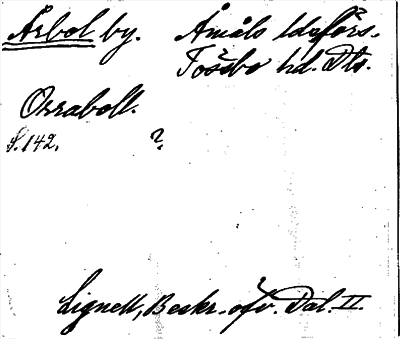 Årbol by. Åmåls ldsförs.
Tössbo hd. Dls.
Orraboll.
S. 142. ?
Lignell, Beskr. öfv. Dal. II.